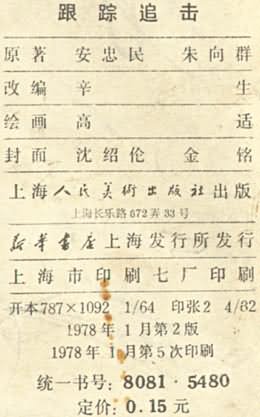 跟踪追击
原著 安忠民 朱向群
改编 辛 生
绘画 高 适
封面 沈绍伦 金铭
上海人民美術出版社出版
上海长乐路672弄33号
新华書店上海发行所发行
上海市印刷七厂印刷
开本787×1092 1/64 印张2 4/82
1978年1月第2版
1978年1月第5次印刷
统一书号：8081·5480
定价：0.15元